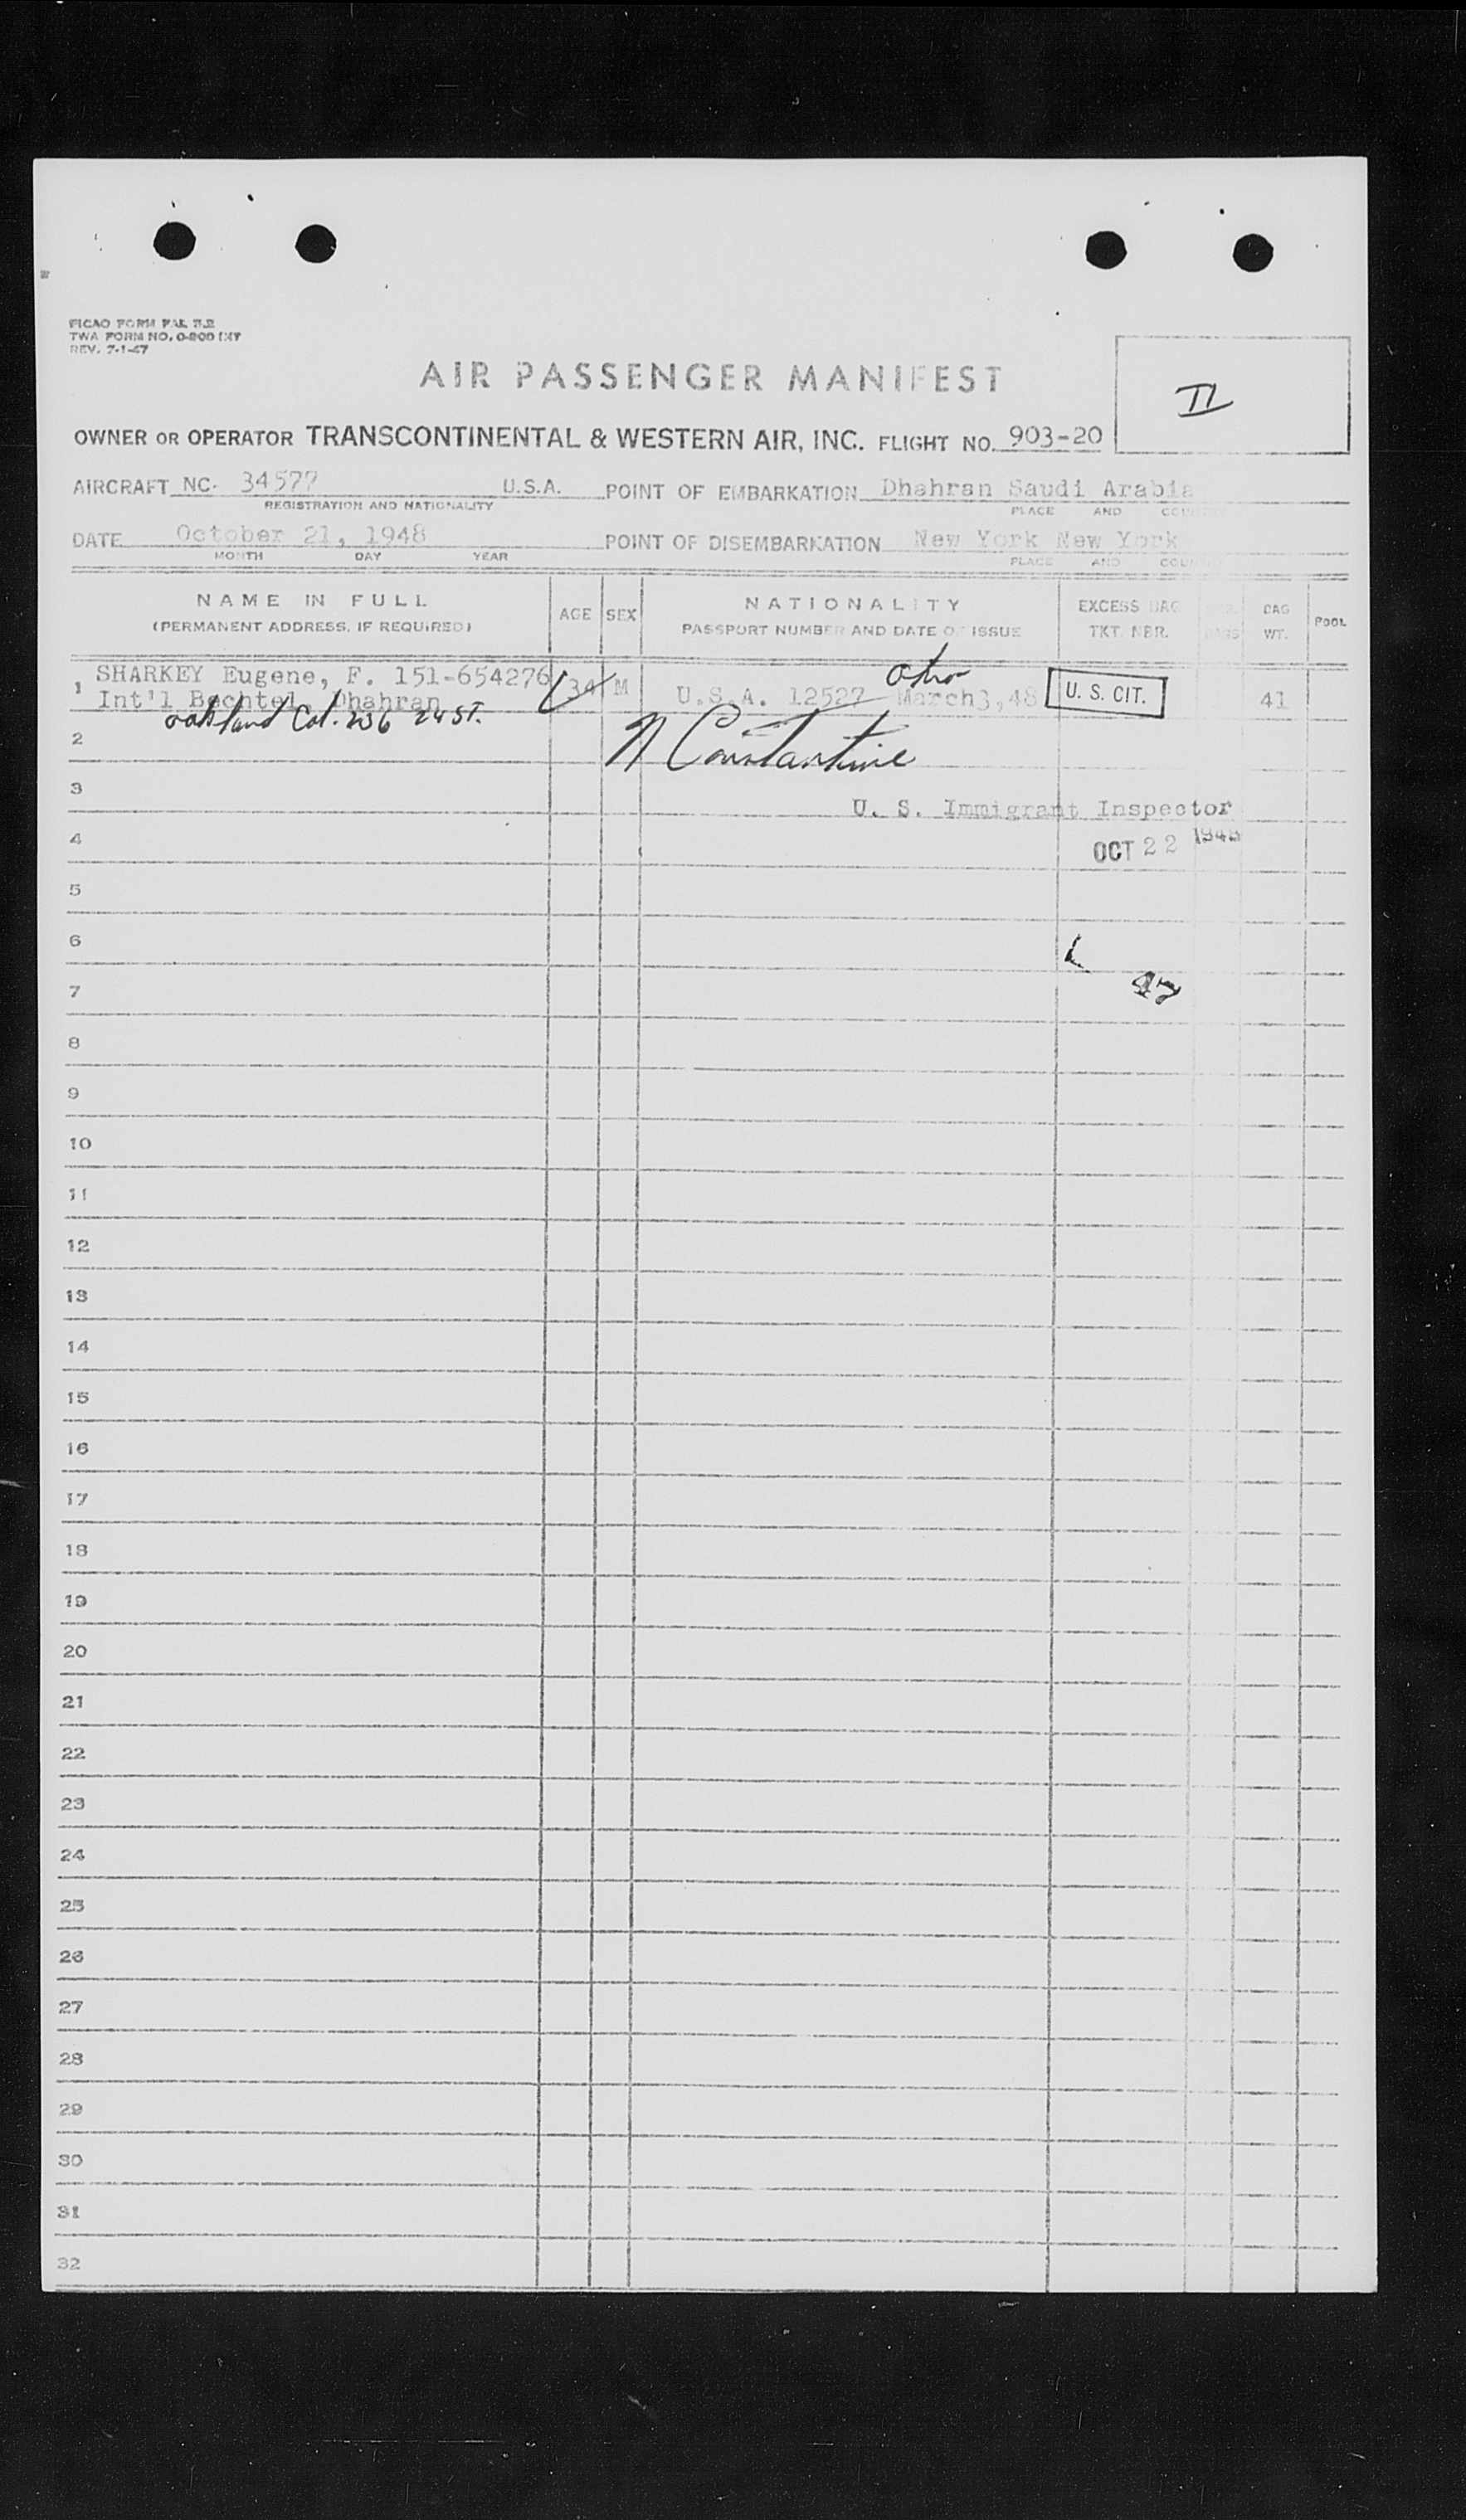 PICAO FORM PAL 2.2
TWA FORM NO. O-800 INT
REV. 7-1-47
AIR PASSENGER MANIFEST
II
OWNER OR OPERATOR TRANSCONTINENTAL & WESTERN AIR, INC. FLIGHT NO. 903-20
AIRCRAFT NC- 34577 U.S.A. POINT OF EMBARKATION Dhahran Saudi Arabia
REGISTRATION AND NATIONALITY PLACE AND COUNTRY
DATE October 21, 1948 POINT OF DISEMBARKATION New York New York
MONTH DAY YEAR PLACE AND COUNTRY
NAME IN FULL AGE SEX NATIONALITY EXCESS BAG BAG POOL
(PERMANENT ADDRESS, IF REQUIRED) PASSPORT NUMBER AND DATE OF ISSUE TKT. NBR. WT.
1 SHARKEY Eugene, F. 151-654276 34 M U.S.A. 12527 March 3, 48 U. S. CIT. 41
Int'l Bechtel, Dhahran
Oakland Cal. 236 24 ST.
2 N Constantine
3 U. S. Immigrant Inspector
4 OCT 22 1948
5
6
7
8
9
10
11
12
13
14
15
16
17
18
19
20
21
22
23
24
25
26
27
28
29
30
31
32